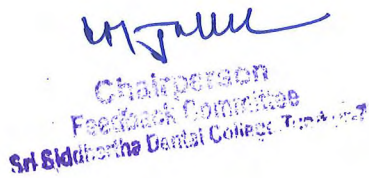 Chairperson
Feedback Committee
Sri Siddhartha Dental College